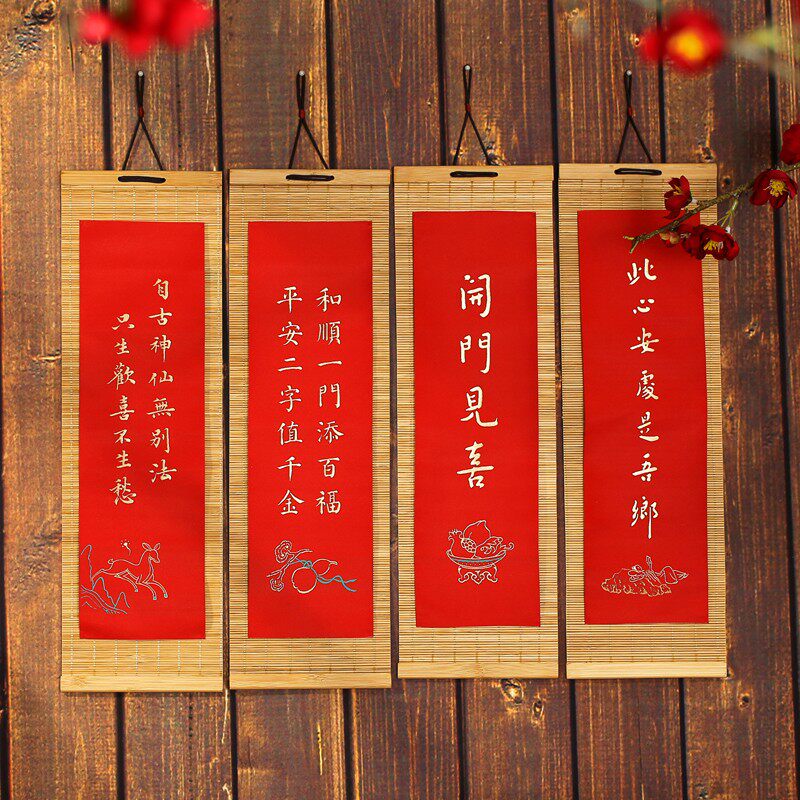 自古神仙無別法
只生歡喜不生愁
和順一門添百福
平安二字值千金
開門見喜
此心安處是吾鄉